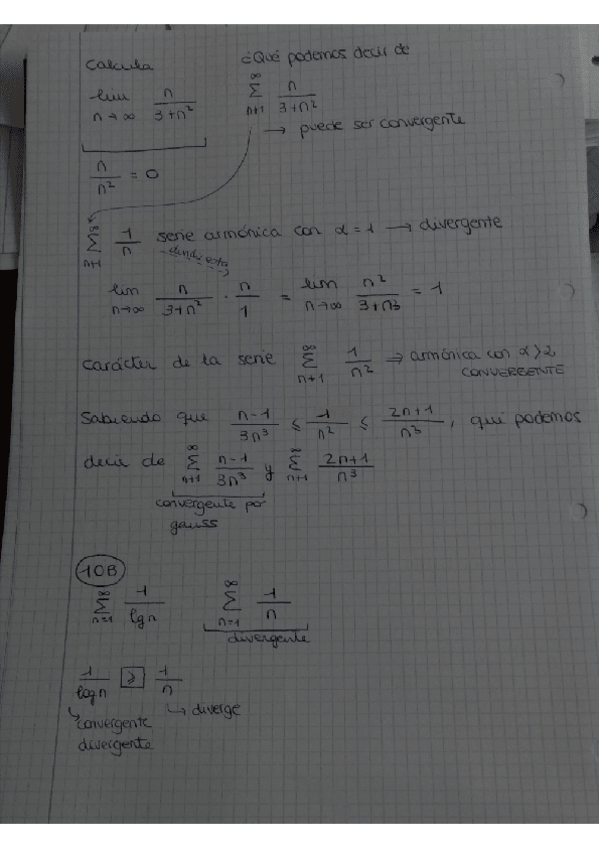 Calcula
lim n→∞ n/(3+n²)
n/n² = 0
¿Qué podemos decir de
∑ n+1 ∞ n/(3+n²)
→ puede ser convergente
∑ n+1 ∞ 1/n serie armónica con α=1 → divergente
lim n→∞ n/(3+n²) · n/1 = lim n→∞ n²/(3+n²) = 1
carácter de la serie ∑ n+1 ∞ 1/n² ⇒ armónica con α>2
CONVERGENTE
Sabiendo que (n-1)/3n³ ≤ 1/n² ≤ (2n+1)/n³, qué podemos
decir de ∑ n+1 ∞ (n-1)/3n³ y ∑ n+1 ∞ (2n+1)/n³
convergente por
gauss
10B
∑ n=1 ∞ 1/lgn ∑ n=1 ∞ 1/n
divergente
1/logn ≥ 1/n
↳ diverge
↳ convergente
divergente